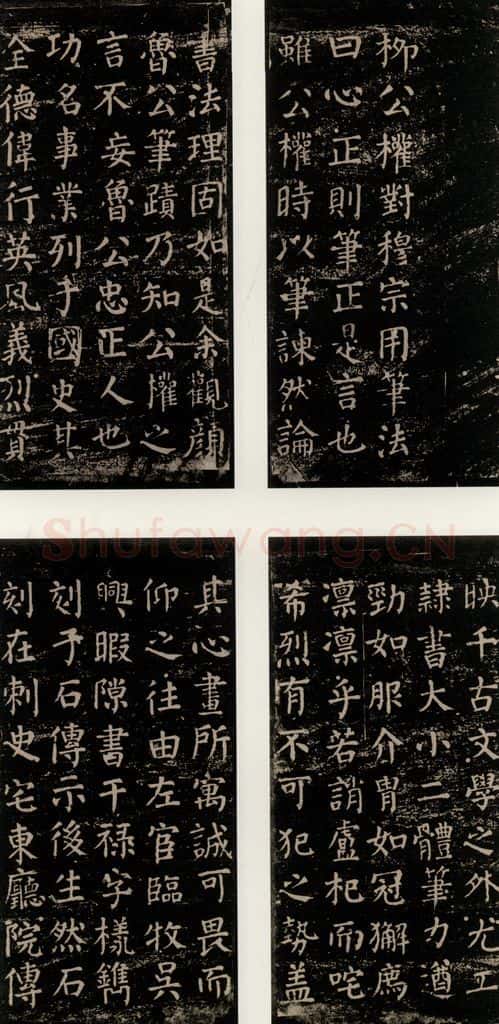 柳公權對穆宗用筆法
曰心正則筆正是言也
雖公權時以筆諫然論
書法理固如是余觀顔
魯公筆蹟乃知公權之
言不妄魯公忠正人也
功名事業列于國史其
全德偉行英風義烈貫
映千古文學之外尤工
隷書大小二體筆力遒
勁如服介胄如冠獬廌
凛凛乎若誚盧杞而咤
希烈有不可犯之勢盖
其心畫所寓誠可畏而
仰之往由左官臨牧吳
興暇隙書干禄字樣鐫
刻于石傳示後生然石
刻在刺史宅東廳院傳
Shufawang.CN